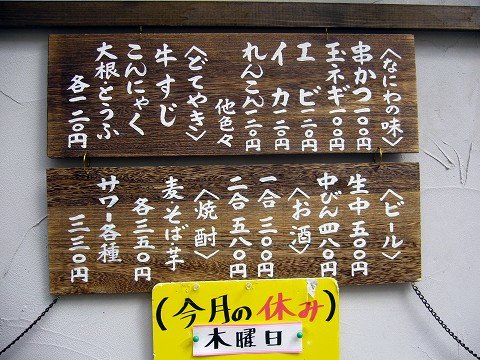 〈なにわの味〉
串かつ一〇〇円
玉ネギ一〇〇円
エビ二〇〇円
イカ一二〇円
れんこん一二〇円
他色々
〈どてやき〉
牛すじ
こんにゃく
大根・とうふ
各一二〇円
〈ビール〉
生中五〇〇円
中びん四八〇円
〈お酒〉
一合三〇〇円
二合五八〇円
〈焼酎〉
麦そば芋
各三五〇円
サワー各種
三三〇円
(今月の休み)
木曜日